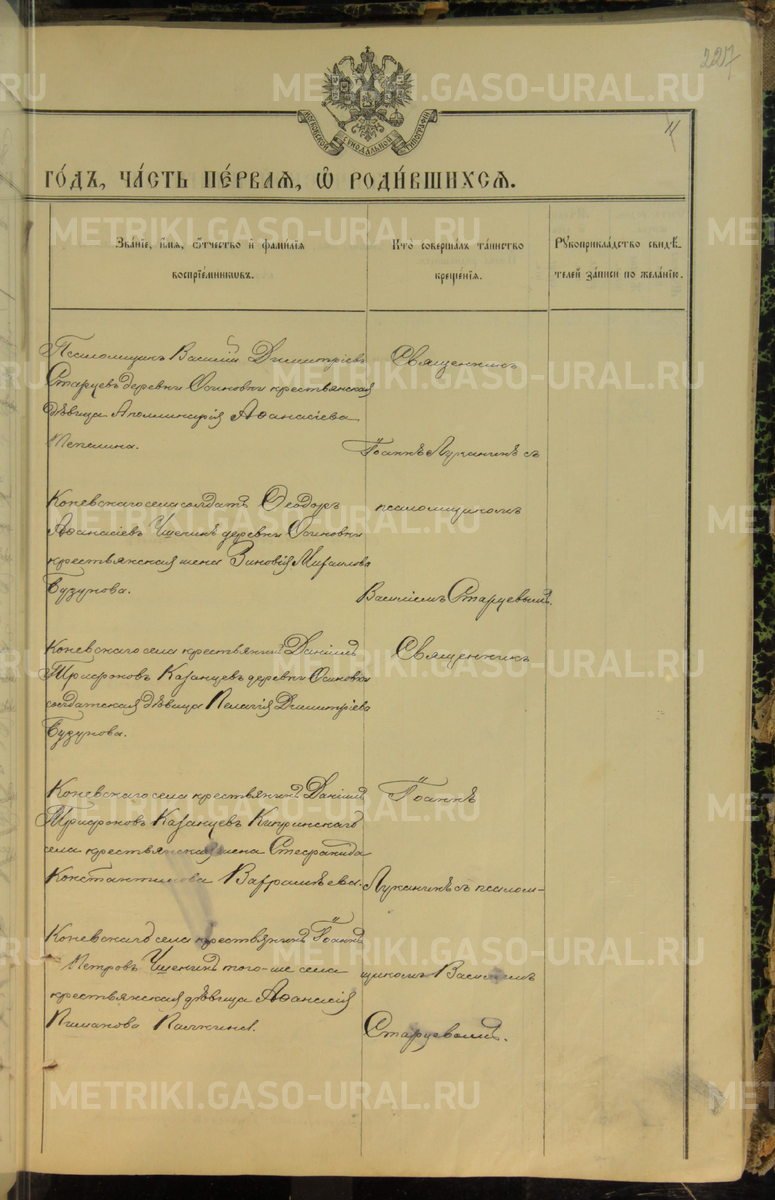 227
11
МОСКОВСКОЙ СѴНОДАЛЬНОЙ ТИПОГРАФІИ
ГО́ДЪ, ЧА́СТЬ ПЕ́РВАЯ, Ѡ РОДИ́ВШИХСЯ.
Зва́нїе, и́мя, ѻ҆́тчество и҆ фамѝлїя
воспрїе́мникѡвъ.
Кто̀ соверша́лъ та́инство
креще́нїя.
Рꙋкоприкла́дство свидѣ́-
телей за́писи по жела́нїю.
Псаломщикъ Василій Димитріевъ
Старцевъ деревни Осиновки крестьянская
дѣвица Аполлинарія Аѳанасіева
Тепелина.
Священникъ
Іоаннъ Луканинъ съ
Коневскаго села солдатъ Ѳеодоръ
Аѳанасіевъ деревни Осиновки
крестьянская жена Зиновія Михаилова
Бузунова.
псаломщикомъ
Василіемъ Старцевымъ.
Коневскаго села крестьянинъ Даніилъ
Трифоновъ Казанцевъ деревни Осиновки
солдатская дѣвица Пелагія Димитріева
Бузунова.
Священникъ
Коневскаго села крестьянинъ Даніилъ
Трифоновъ Казанцевъ Кипринскаго
села крестьянская жена Стефанида
Константинова
Іоаннъ
Луканинъ съ псалом-
Коневскаго села крестьянинъ Іоаннъ
Петровъ того-же села
крестьянская дѣвица Аѳанасія
Пиманова
щикомъ Василіемъ
Старцевымъ.
METRIKI.GASO-URAL.RU